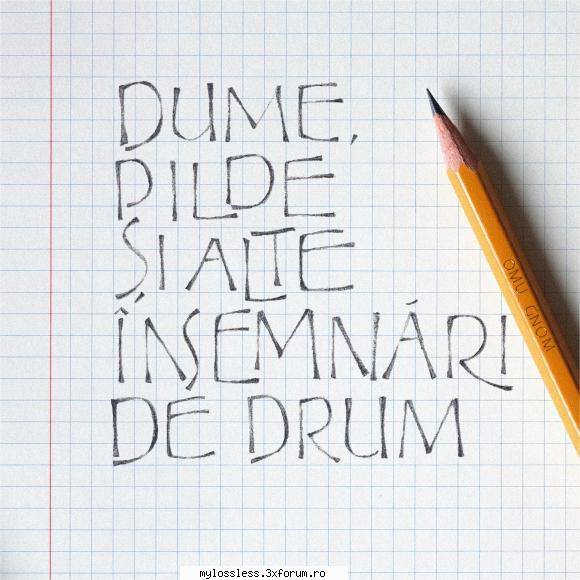 DUME,
PILDE
ȘI ALTE
ÎNSEMNĂRI
DE DRUM
OMU GNOM
mylossless.3xforum.ro